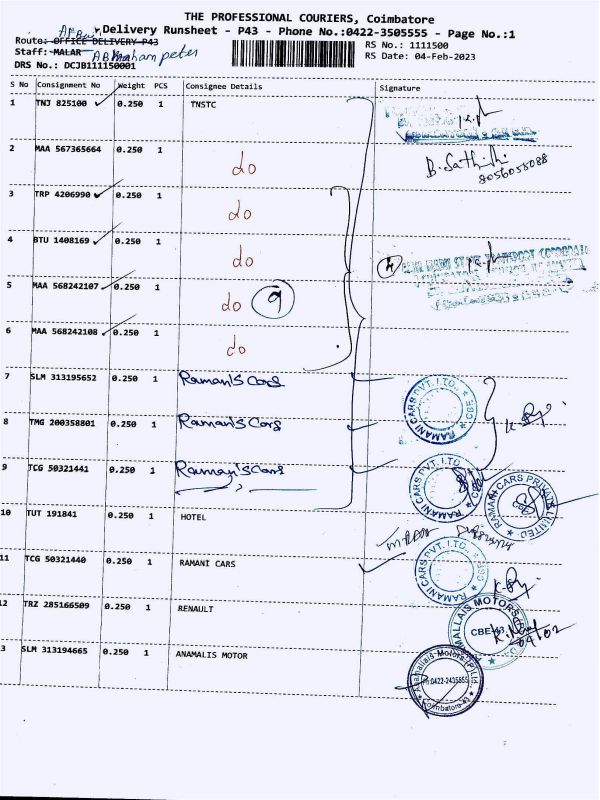 THE PROFESSIONAL COURIERS, Coimbatore
Delivery Runsheet - P43 - Phone No.:0422-3505555 - Page No.:1
Route: OFFICE DELIVERY P43
RS No.: 1111500
Staff: MALAR Abraham peter
RS Date: 04-Feb-2023
DRS No.: DCJB111150001
S No Consignment No Weight PCS Consignee Details Signature
1 TNJ 825100 0.250 1 TNSTC
2 MAA 567365664 0.250 1 do
B. Sathish
8056055088
3 TRP 4206990 0.250 1 do
4 BTU 1408169 0.250 1 do
5 MAA 568242107 0.250 1 do 9
6 MAA 568242108 0.250 1 do
7 SLM 313195652 0.250 1 Ramani's Cars
RAMANI CARS PVT. LTD., CBE
8 TMG 200358801 0.250 1 Ramani's Cars
9 TCG 50321441 0.250 1 Ramani's Cars
RAMANI CARS PVT. LTD., CBE
RAMANI CARS PRIVATE LIMITED
10 TUT 191841 0.250 1 HOTEL
11 TCG 50321440 0.250 1 RAMANI CARS
RAMANI CARS PVT. LTD., CBE
12 TRZ 285166509 0.250 1 RENAULT
CBE-43
04/02
13 SLM 313194665 0.250 1 ANAMALIS MOTOR
Anamallais Motors (P) Ltd
PH:0422-2435855
Coimbatore-43